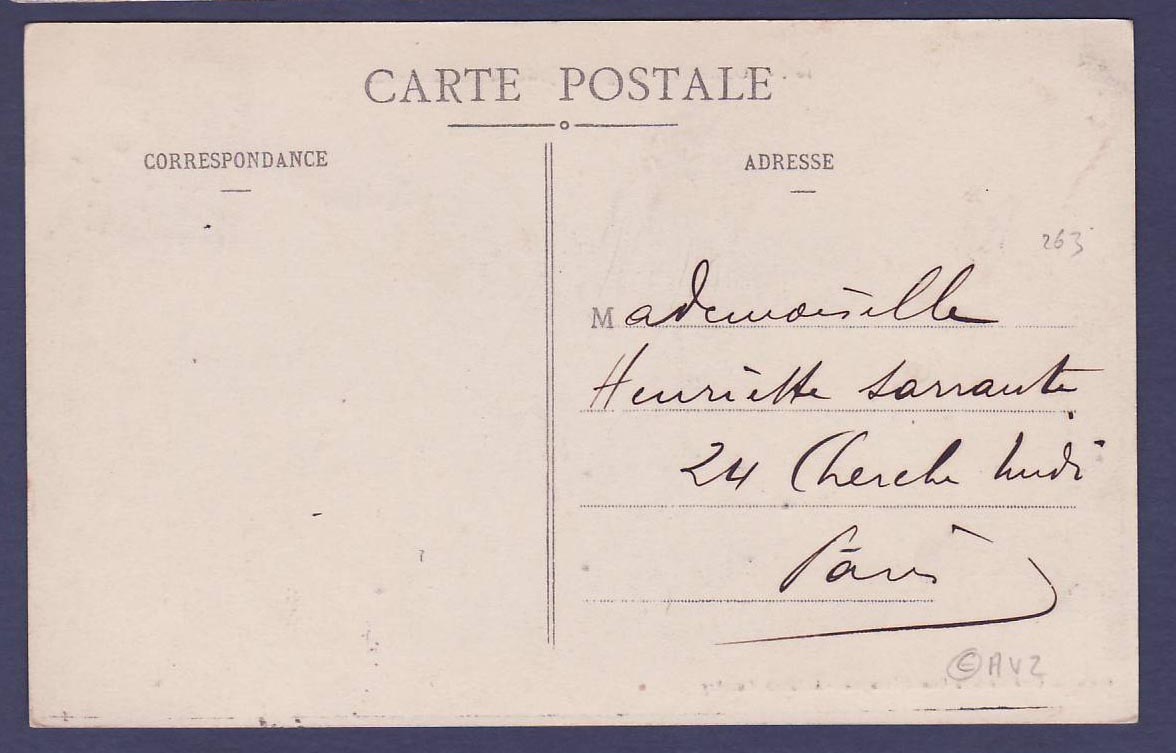 CARTE POSTALE
CORRESPONDANCE
ADRESSE
263
Mademoiselle
Henriette Sarraute
24 Cherche Midi
Paris
© AVZ